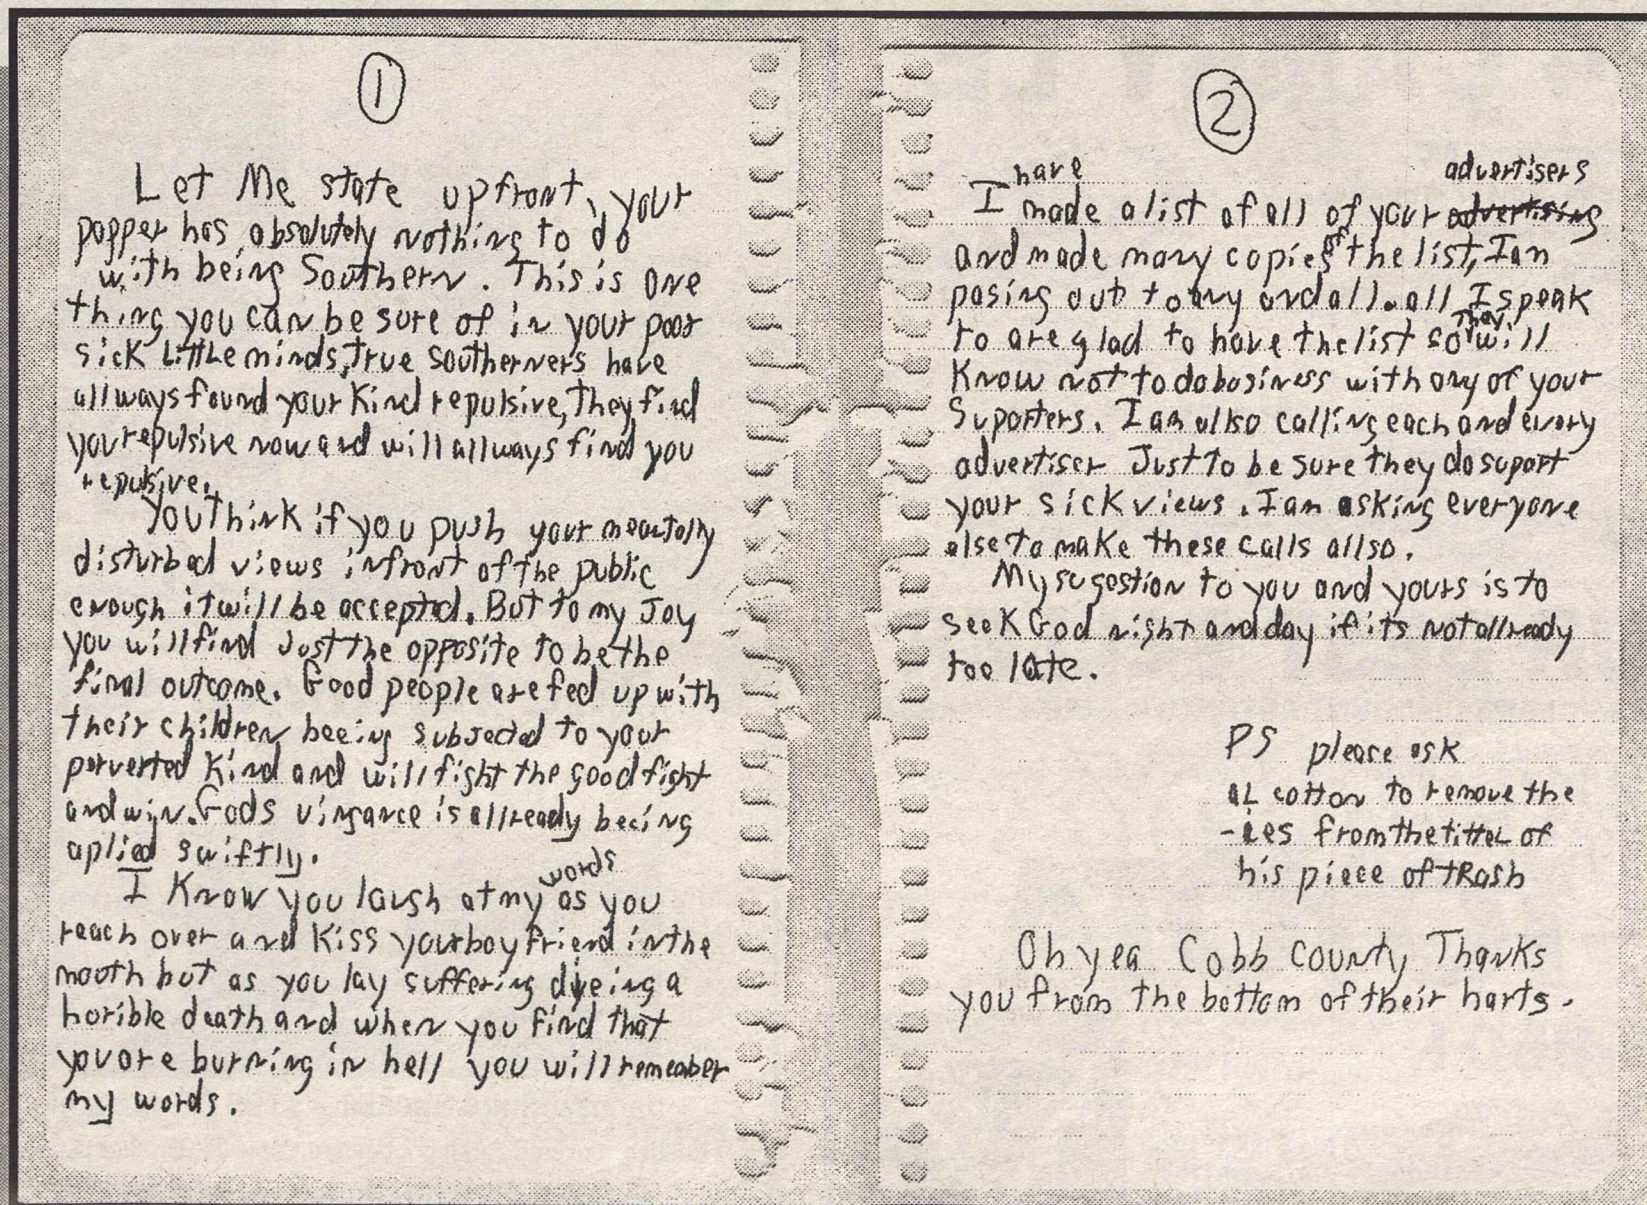 1
Let Me state upfront, your
papper has absolutely nothing to do
with being Southern. This is one
thing you can be sure of in your poor
sick little minds, true southerners have
allways found your Kind repulsive, They find
you repulsive now and will allways find you
repulsive.
You think if you push your meantally
disturbed views infront of the public
enough it will be accepted. But to my Joy
you will find Just the opposite to be the
final outcome. Good people are fed up with
their children beeing subjected to your
perverted Kind and will fight the good fight
and win. Gods vingance is allready beeing
aplied swiftly.
I Know you laugh at my words as you
reach over and Kiss your boyfriend in the
mouth but as you lay suffering dyeing a
horible death and when you find that
you are burning in hell you will remember
my words.
2
I have made a list of all of your advertising advertisers
and made many copies of the list, I am
pasing out to any and all. all I speak
to are glad to have the list so They will
Know not to do business with any of your
Suporters. I am allso calling each and every
advertiser Just to be sure they do suport
your sick views. I am asking everyone
else to make these calls allso.
My sugestion to you and yours is to
seek God night and day if its not allready
too late.
PS please ask
AL cotton to remove the
-ies from the tittel of
his piece of tRash
Oh yea Cobb County Thanks
you from the bottom of their harts.